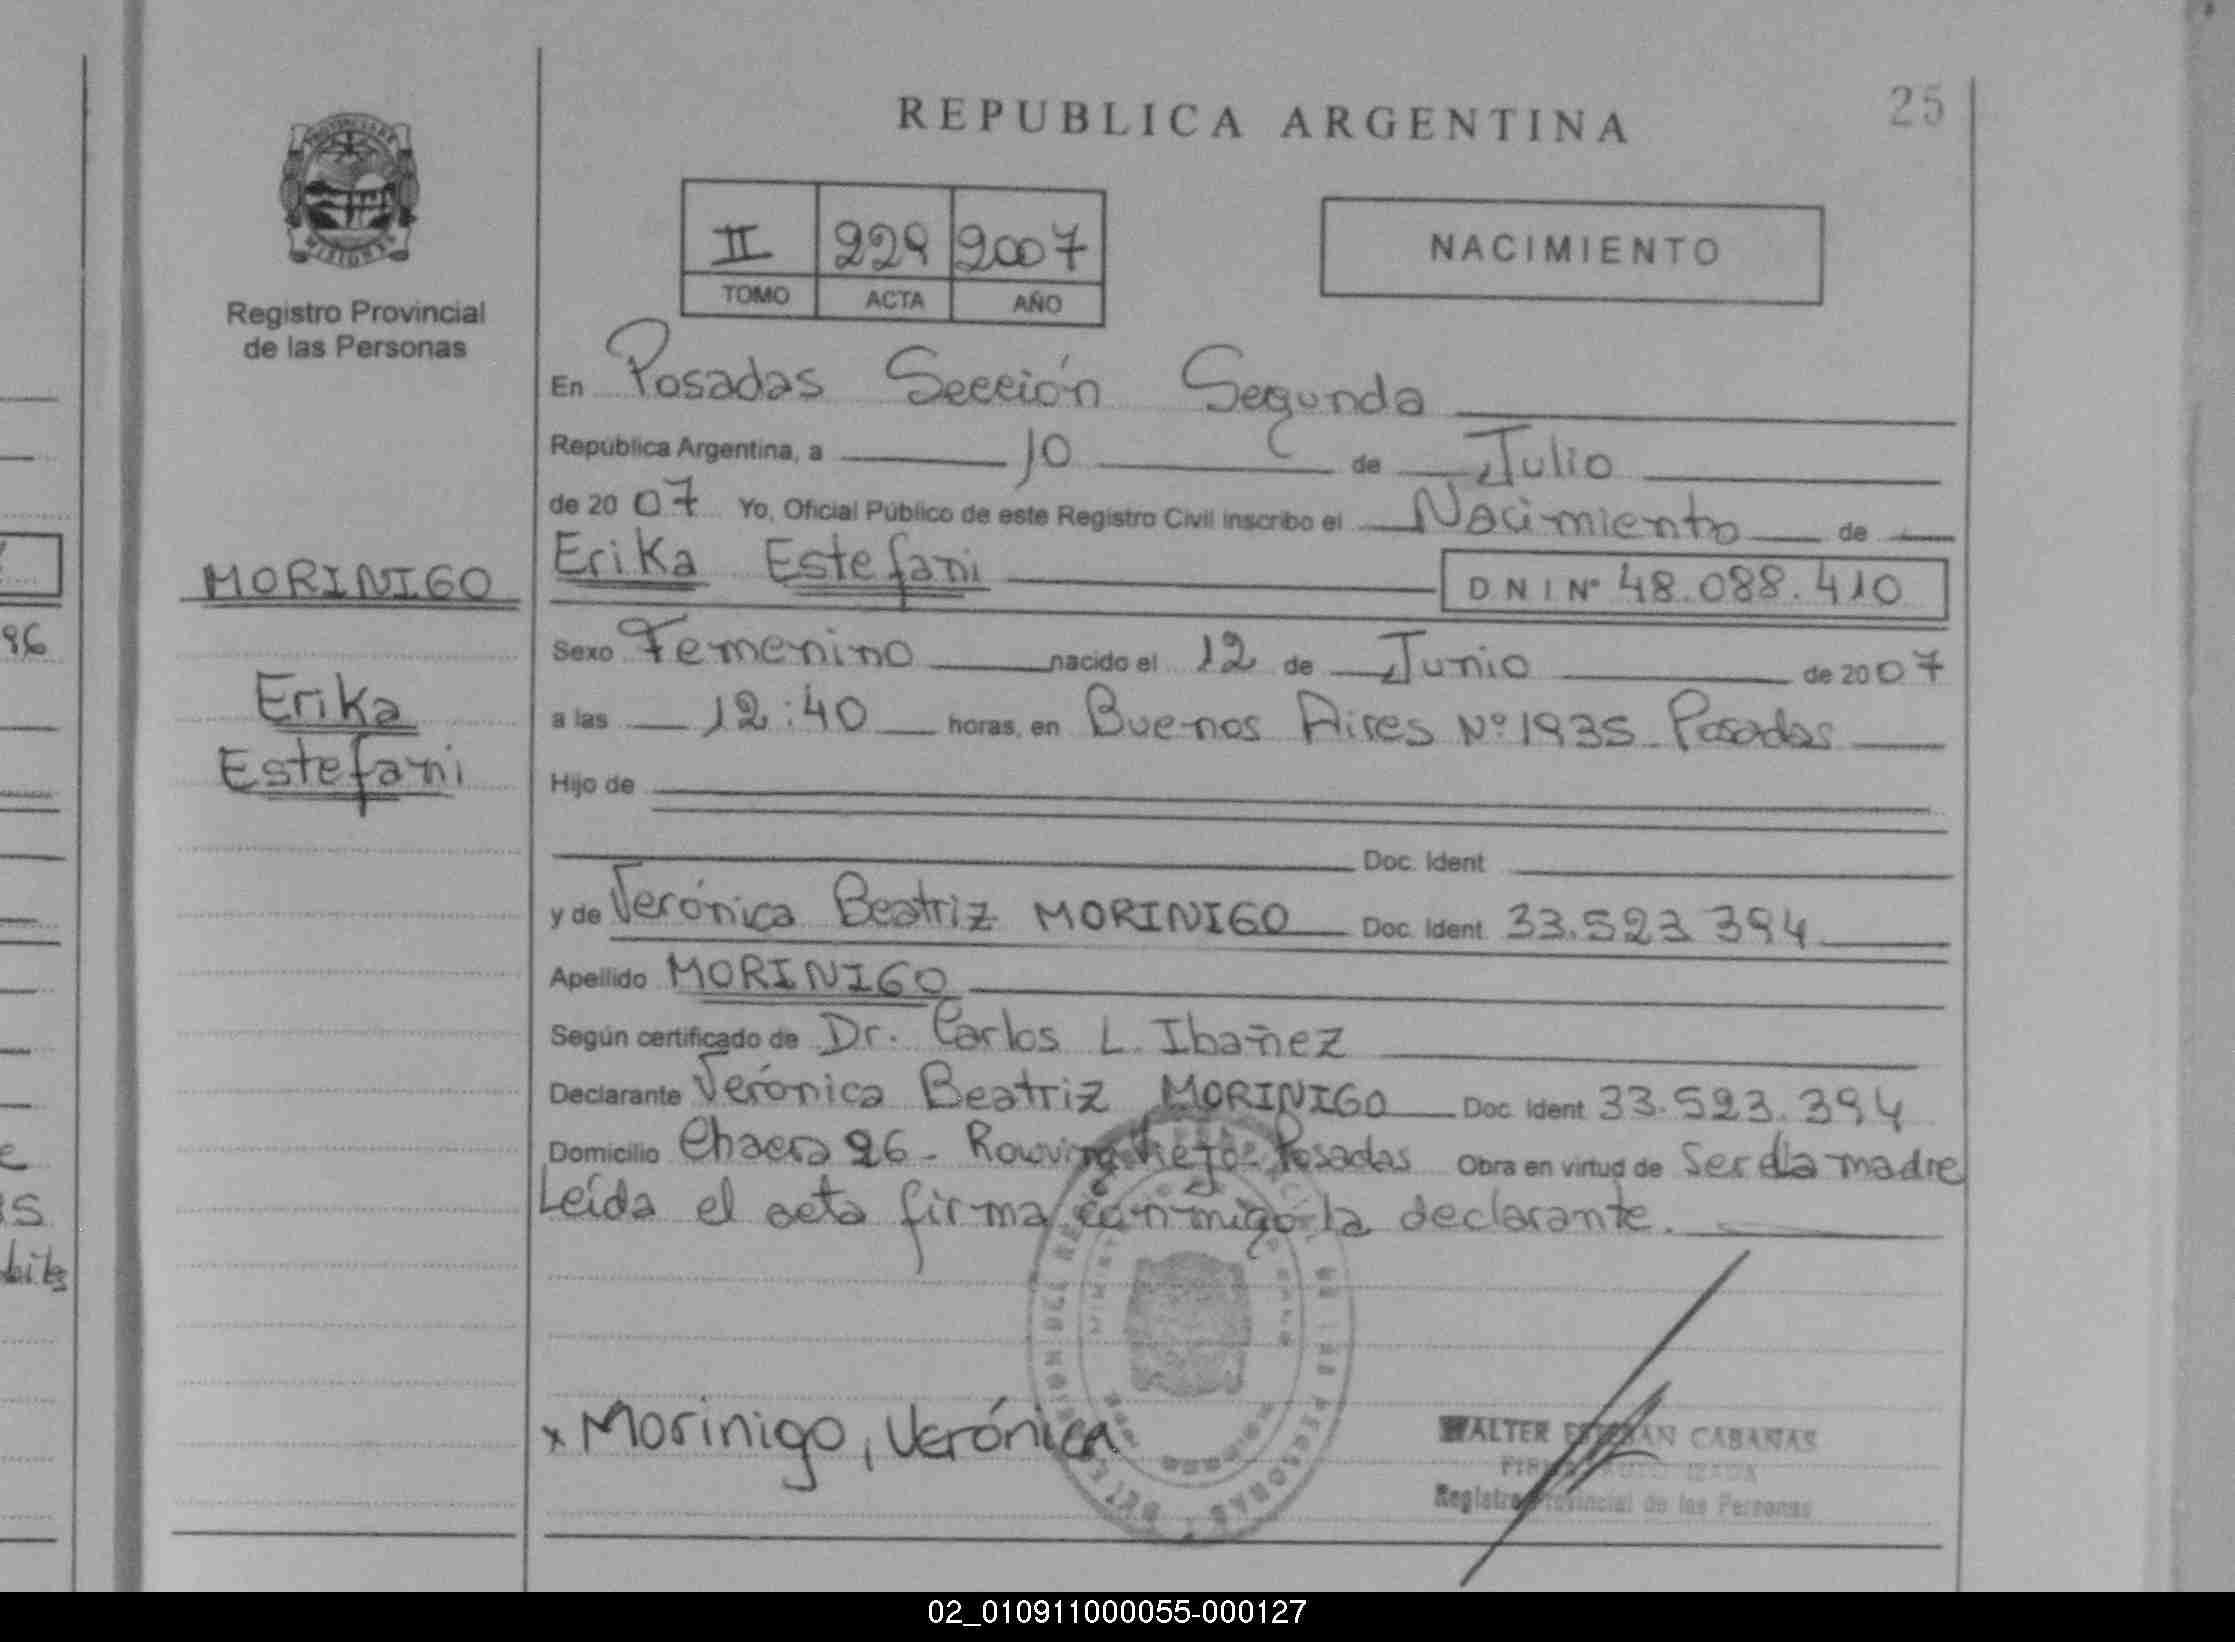 REPUBLICA ARGENTINA
25
PROVINCIA DE MISIONES
Registro Provincial
de las Personas
II 229 2007
TOMO ACTA AÑO
NACIMIENTO
En Posadas Sección Segunda
República Argentina, a 10 de Julio
de 2007 Yo, Oficial Público de este Registro Civil inscribo el Nacimiento de
MORINIGO
Erika
Estefani
Erika Estefani DNI Nº 48.088.410
Sexo Femenino nacido el 12 de Junio de 2007
a las 12:40 horas, en Buenos Aires Nº 1935 Posadas
Hijo de
Doc. Ident
y de Verónica Beatriz MORINIGO Doc. Ident. 33.523.394
Apellido MORINIGO
Según certificado de Dr. Carlos L. Ibañez
Declarante Verónica Beatriz MORINIGO Doc. Ident 33.523.394
Domicilio Chacra 26 - Posadas Obra en virtud de Ser la madre
Leída el acta firma conmigo la declarante.
x Morinigo, Verónica
WALTER CABAÑAS
Registro Provincial de las Personas
02_010911000055-000127